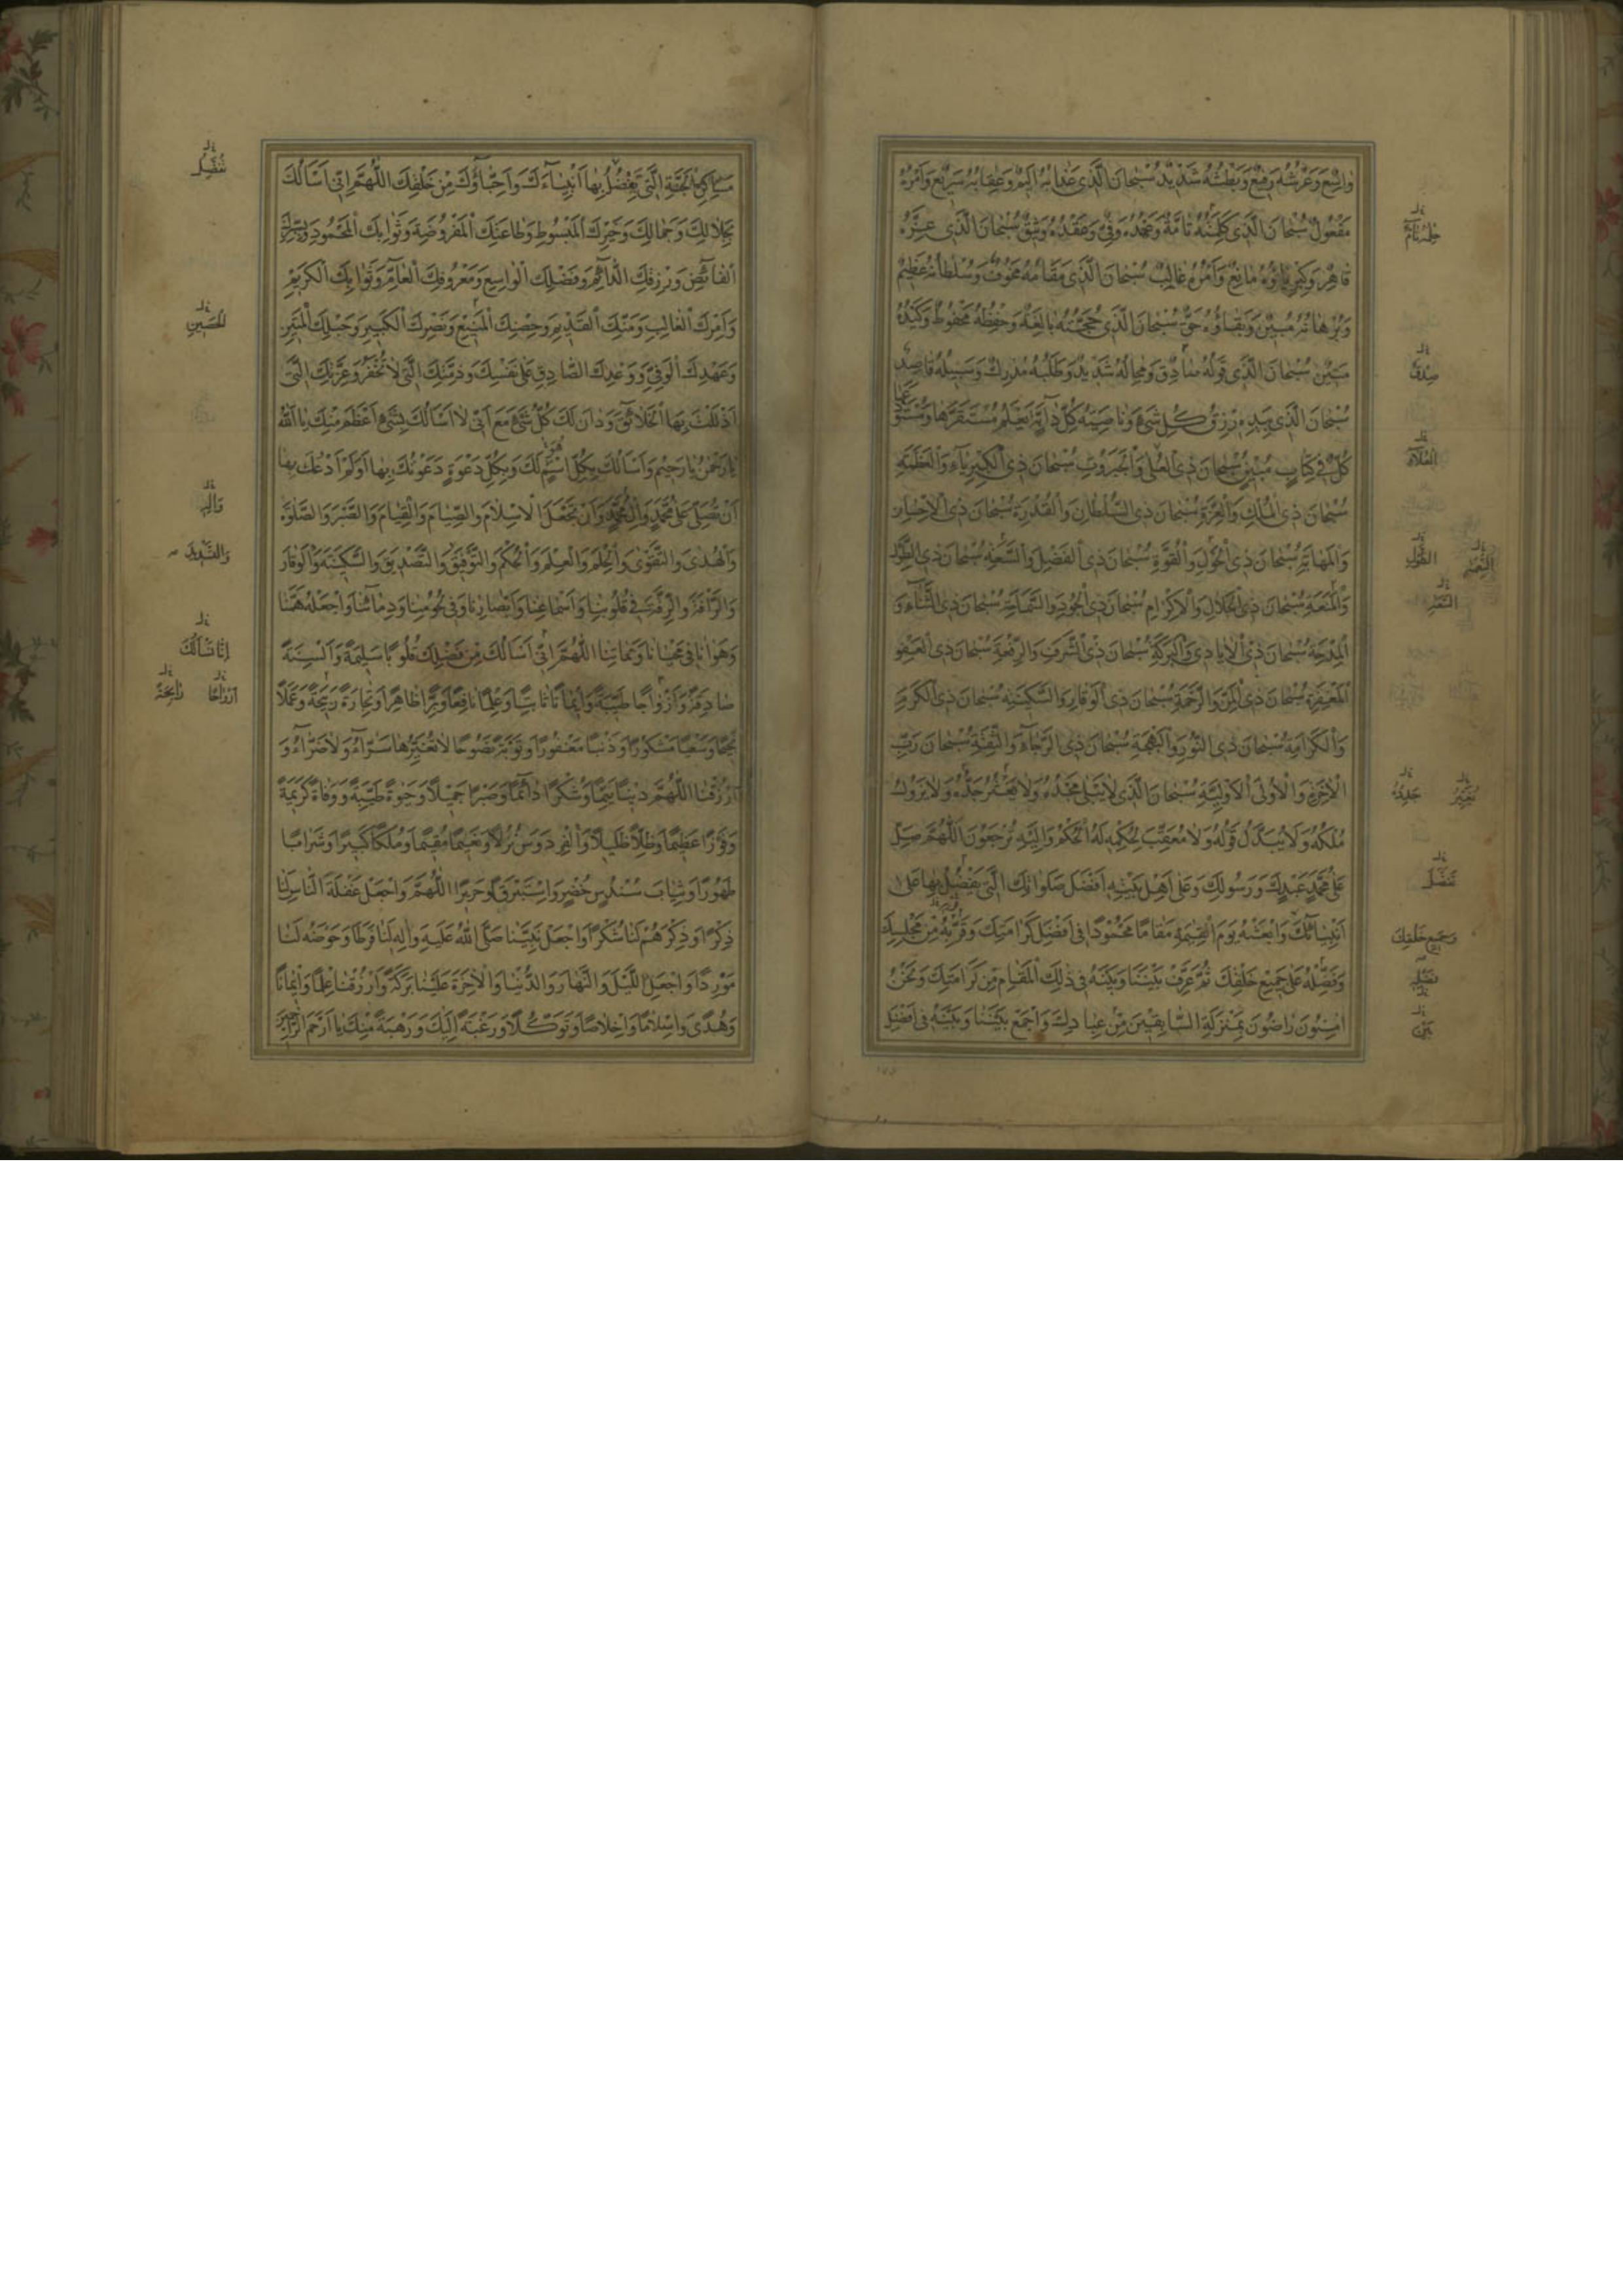 واسِعٌ وَعَرْشُهُ رَفيعٌ وَبَطْشُهُ شَديدٌ سُبْحانَ الَّذى عَذابُهُ اَليمٌ وَعِقابُهُ سَريعٌ وَاَمْرُهُ
مَفْعُولٌ سُبْحانَ الَّذى كَلِمَتُهُ تامَّةٌ وَعَهْدُهُ وَفِىٌّ وَعَقْدُهُ وَثيقٌ سُبْحانَ الَّذى عِزُّهُ
قاهِرٌ وَكِبْرِياؤُهُ مانِعٌ وَاَمْرُهُ غالِبٌ سُبْحانَ الَّذى مَقامُهُ مَخُوفٌ وَسُلْطانُهُ عَظيمٌ
وَبُرْهانُهُ مُبينٌ وَبَقاؤُهُ حَقٌّ سُبْحانَ الَّذى حُجَّتُهُ بالِغَةٌ وَحِفْظُهُ مَحْفُوظٌ وَكَيْدُهُ
مَتينٌ سُبْحانَ الَّذى قَوْلُهُ صادِقٌ وَمِحالُهُ شَديدٌ وَطَلَبُهُ مُدْرِكٌ وَسَبيلُهُ قاصِدٌ
سُبْحانَ الَّذى بِيَدِهِ رِزْقُ كُلِّ شَىْءٍ وَناصِيَةُ كُلِّ دآبَّةٍ يَعْلَمُ مُسْتَقَرَّها وَمُسْتَوْدَعَها
كُلٌّ فى كِتابٍ مُبينٍ سُبْحانَ ذِى الْعُلى وَالْجَبَرُوتِ سُبْحانَ ذِى الْكِبْرِيآءِ وَالْعَظَمَةِ
سُبْحانَ ذِى الْمُلْكِ وَالْعِزَّةِ سُبْحانَ ذِى السُّلْطانِ وَالْقُدْرَةِ سُبْحانَ ذِى الْاِحْسانِ
وَالْمَهابَةِ سُبْحانَ ذِى الْحَوْلِ وَالْقُوَّةِ سُبْحانَ ذِى الْفَضْلِ وَالسَّعَةِ سُبْحانَ ذِى الطَّوْلِ
وَالْمَنَعَةِ سُبْحانَ ذِى الْجَلالِ وَالْاِكْرامِ سُبْحانَ ذِى الْجُودِ وَالسَّماحَةِ سُبْحانَ ذِى الثَّنآءِ وَ
الْمِدْحَةِ سُبْحانَ ذِى الْاَيادى وَالْبَرَكَةِ سُبْحانَ ذِى الشَّرَفِ وَالرِّفْعَةِ سُبْحانَ ذِى الْعَفْوِ
الْمَغْفِرَةِ سُبْحانَ ذِى الْمَنِّ وَالرَّحْمَةِ سُبْحانَ ذِى الْوَقارِ وَالسَّكينَةِ سُبْحانَ ذِى الْكَرَمِ
وَالْكَرامَةِ سُبْحانَ ذِى النُّورِ وَالْبَهْجَةِ سُبْحانَ ذِى الرَّجآءِ وَالثِّقَةِ سُبْحانَ رَبِّ
الْاخِرَةِ وَالْاُولى سُبْحانَ الَّذى لا يَبْلى مَجْدُهُ وَلا جَدُّهُ وَلا يَزُولُ
مُلْكُهُ وَلا يُبَدَّلُ قَوْلُهُ وَلا مُعَقِّبَ لِحُكْمِهِ لَهُ الْحُكْمُ وَاِلَيْهِ تُرْجَعُونَ اَللّهُمَّ صَلِّ
عَلى مُحَمَّدٍ عَبْدِكَ وَرَسُولِكَ وَعَلى اَهْلِ بَيْتِهِ اَفْضَلَ صَلَواتِكَ الَّتى يَفْضُلُ بِها عَلى
اَنْبِيائِكَ وَابْعَثْهُ يَوْمَ الْقِيمَةِ مَقامًا مَحْمُودًا فى اَفْضَلِ كَرامَتِكَ وَقَرِّبْهُ مِنْ مَجْلِسِكَ
وَفَضِّلْهُ عَلى جَميعِ خَلْقِكَ ثُمَّ عَرِّفْ بَيْنَنا وَبَيْنَهُ فى ذلِكَ الْمَقامِ مِنْ كَرامَتِكَ وَنَحْنُ
امِنُونَ راضُونَ بِمَنْزِلَةِ السّابِقينَ مِنْ عِبادِكَ وَاجْمَعْ بَيْنَنا وَبَيْنَهُ فى اَفْضَلِ
صِدْقٌ
وَجَميعِ خَلْقِكَ
مَساكِنِ الْجَنَّةِ الَّتى تُفَضِّلُ بِها اَنْبِيآءَكَ وَاَحِبّآؤُكَ مِنْ خَلْقِكَ اَللّهُمَّ اِنّى اَسْاَلُكَ
بِجَلالِكَ وَجَمالِكَ وَخَيْرِكَ الْمَبْسُوطِ وَطاعَتِكَ الْمَفْرُوضَةِ وَثَوابِكَ الْمَحْمُودِ
الْفآئِضِ وَرِزْقِكَ الدّآئِمِ وَفَضْلِكَ الْواسِعِ وَمَعْرُوفِكَ الْعآمِّ وَثَوابِكَ الْكَريمِ
وَاَمْرِكَ الْغالِبِ وَمَنِّكَ الْقَديمِ وَحِصْنِكَ الْمَنيعِ وَنَصْرِكَ الْكَبيرِ وَحَبْلِكَ الْمَتينِ
وَعَهْدِكَ الْوَفِىِّ وَوَعْدِكَ الصّادِقِ عَلى نَفْسِكَ وَذِمَّتِكَ الَّتى لا تُخْفَرُ وَعِزَّتِكَ الَّتى
اَذْلَلْتَ بِهَا الْخَلائِقَ وَدانَ لَكَ كُلُّ شَىْءٍ مَعَ اَنّى لا اَسْاَلُكَ بِشَىْءٍ اَعْظَمَ مِنْكَ يا اَللّهُ
يا رَحْمنُ يا رَحيمُ وَاَسْاَلُكَ بِكُلِّ اسْمٍ هُوَ لَكَ وَبِكُلِّ دَعْوَةٍ دَعَوْتُكَ بِها اَوْ لَمْ اَدْعُكَ بِها
اَنْ تُصَلِّىَ عَلى مُحَمَّدٍ وَآلِ مُحَمَّدٍ وَاَنْ تَجْعَلَ الْاِسْلامَ وَالصِّيامَ وَالْقِيامَ وَالصَّبْرَ وَالصَّلوةَ
وَالْهُدى وَالتَّقْوى وَالْحِلْمَ وَالْعِلْمَ وَالْحُكْمَ وَالتَّوْفيقَ وَالتَّصْديقَ وَالسَّكينَةَ وَالْوَقارَ
وَالرَّأْفَةَ وَالرِّقَّةَ فى قُلُوبِنا وَاَسْماعِنا وَاَبْصارِنا وَفى لُحُومِنا وَدِمآئِنا وَاجْعَلْهُ هَمَّنا
وَهَوانا فى مَحْيانا وَمَماتِنا اَللّهُمَّ اِنّى اَسْاَلُكَ مِنْ فَضْلِكَ قُلُوبًا سَليمَةً وَاَلْسِنَةً
صادِقَةً وَاَزْواجًا طَيِّبَةً وَايمانًا ثابِتًا وَعِلْمًا نافِعًا وَبِرًّا ظاهِرًا وَتِجارَةً رَبِحَةً وَعَمَلًا
نُجْحًا وَسَعْيًا مَشْكُورًا وَذَنْبًا مَغْفُورًا وَتَوْبَةً نَصُوحًا لا تُغَيِّرُها سَرّآءُ وَلا ضَرّآءُ وَ
ارْزُقْنَا اللّهُمَّ دينًا قَيِّمًا وَشُكْرًا دآئِمًا وَصَبْرًا جَميلًا وَحَيوةً طَيِّبَةً وَوَفاةً كَريمَةً
وَفَوْزًا عَظيمًا وَظِلًّا ظَليلًا وَالْفِرْدَوْسَ نُزُلًا وَنَعيمًا مُقيمًا وَمُلْكًا كَبيرًا وَشَرابًا
طَهُورًا وَثِيابَ سُنْدُسٍ خُضْرٍ وَاِسْتَبْرَقٍ وَحَريرًا اَللّهُمَّ وَاجْعَلْ غَفْلَةَ النّاسِ لَنا
ذِكْرًا وَذِكْرَهُمْ لَنا شُكْرًا وَاجْعَلْ نَبِيَّنا صَلَّى اللّهُ عَلَيْهِ وَآلِهِ لَنا فَرَطًا وَحَوْضَهُ لَنا
مَوْرِدًا وَاجْعَلِ اللَّيْلَ وَالنَّهارَ وَالدُّنْيا وَالْاخِرَةَ عَلَيْنا بَرَكَةً وَارْزُقْنا عِلْمًا وَايمانًا
وَهُدًى وَاِسْلامًا وَاِخْلاصًا وَتَوَكُّلًا وَرَغْبَةً اِلَيْكَ وَرَهْبَةً مِنْكَ يا اَرْحَمَ الرّاحِمينَ
تُفَضِّلُ
وَآلِهِ
اِنّا نَسْاَلُكَ
اَزْواجًا رابِحَةً